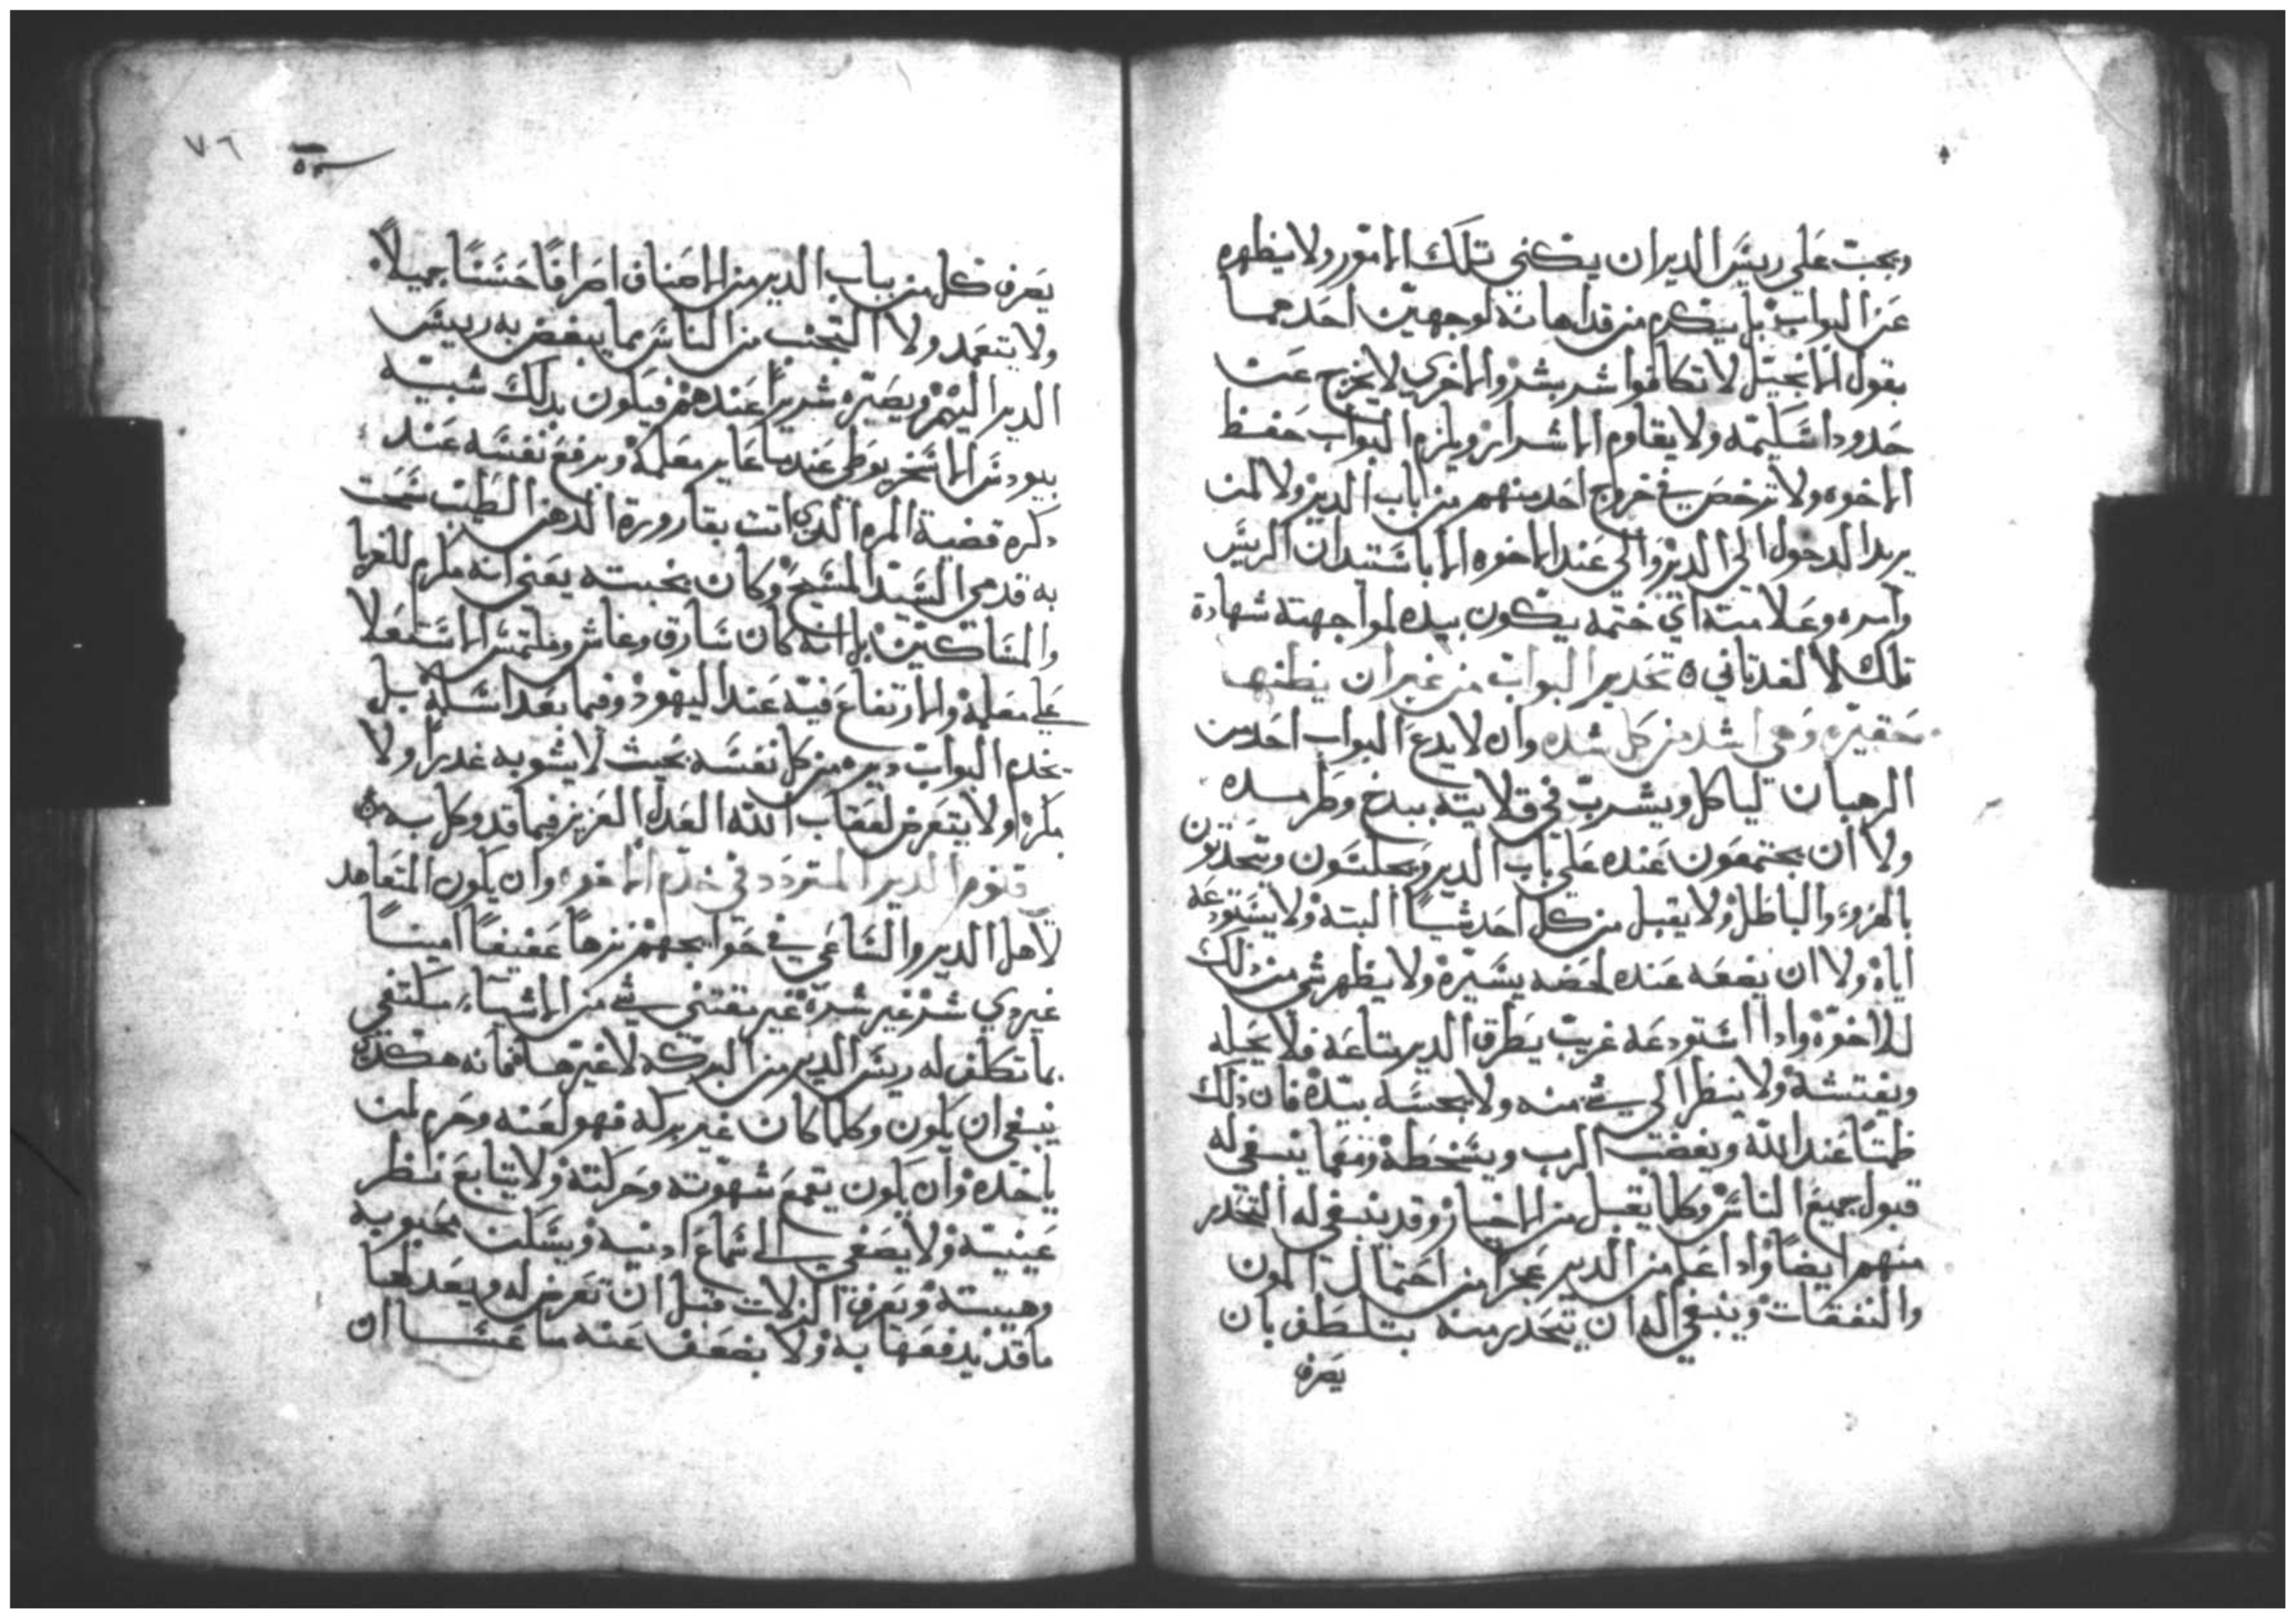 ويجب على ريس الدير ان يكني تلك الامور ولا يظهره
عن البواب بل يكرم من قد اهانه لوجهين احدهما
بقول الانجيل لا تكافوا شر بشر والاخري لا يخرج عن
حدود اسكيمه ولا يقاوم الاشرار ويلزم البواب حفظ
الاخوه ولا ترخص في خروج احد منهم من باب الدير ولا لمن
يريد الدخول الى الدير والى عند الاخوه الا باستيدان الريس
وامره وعلامته اي ختمه يكون بيده لمواجهته شهادة
تلك لا لغد تاني ه تحدير البواب من غير ان يظنها
حقيره وهى اشد من كل شده وان لا يدع البواب احد من
الرهبان لياكل ويشرب في قلايته ببدخ وطرمسده
ولا ان يجتمعون عنده على باب الدير ويجلسون ويتحدتون
بالهزو والباطل ولا يقبل من كل احد شيا البته ولا يستودعه
اياه ولا ان يضعه عنده لحضه يسيره ولا يظهر شي من ذلك
للاخوه وادا استودعه غريب يطرق الدير ساعه فلا يحله
ويفتشه ولا ينظر الى شي منه ولا يجسه بيده فان ذلك
ظمتا عند الله ويغضب الرب ويسخطه ومهما ينبغي له
قبول جميع الناس وكلما يقبل من الاخيار وقد ينبغي له التحدر
منهم ايضا وادا علم من الدير عجزا من احتمال المون
والنفقات وينبغي له ان يتحدر منه بتلطف بان
يصرف
٧٦
يصرف كل من بباب الدير من الاصناف اصرافا حسنا جميلا
ولا يتعمد ولا التجنب من الناس بما يبغض به رييس
الدير اليهم ويصيره شريرا عندهم فيكون بدلك شبيه
بيودس الاسخريوطي عندما عاير معلمه ويرفع نفسه عند
دكره قضية المره الدي اتت بقارورة الدهن الطيب مسحت
به قدمي السيد المسيح وكان بخبته يعني انه مكرم للغربا
والمساكين بل انه كان سارق وغاش وملتمس الاستعلا
على معلمه والارتفاع فيه عند اليهود وفيما بعد اسلمه بل
يخدم البواب ديره من كل نفسه بحيث لا يشوبه غدرا ولا
مكرا ولا يتعرض لعقاب الله العدل العزيز فيما قد وكل به
قنوم الدير المتردد في خدم الاخوه وان يكون المتعاهد
لاهل الدير والساعي في حوايجهم نزها عفيفا امينا
غير دي شر غير شره غير يقتني شي من الاشياء مكتفي
بما تكلف له ريس الدير من البركه لا غيرها فانه هكدي
ينبغي ان يكون وكلما كان غير بركه فهو لعنه وحرم لمن
ياخده وان يكون يقمع شهوته وحركته ولا يتابع نظر
عينيه ولا يصغي الى سماع ادنيه ويسكن بحبوبه
وهيبته ويعرف الزلات قبل ان تعرض له ويعد لها
ما قد يدفعها به ولا يضعف عنه ما عسا ان